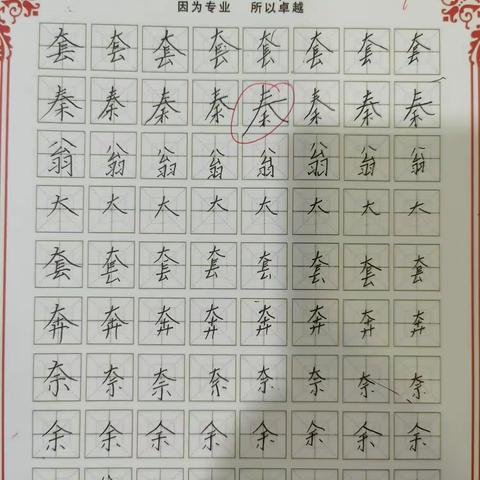 因为专业 所以卓越
套套套套套套套套
秦秦秦秦秦秦秦秦
翁翁翁翁翁翁翁翁
大大大大大大大大
套套套套套套套套
奔奔奔奔奔奔奔奔
奈奈奈奈奈奈奈奈
余余余余余余余余